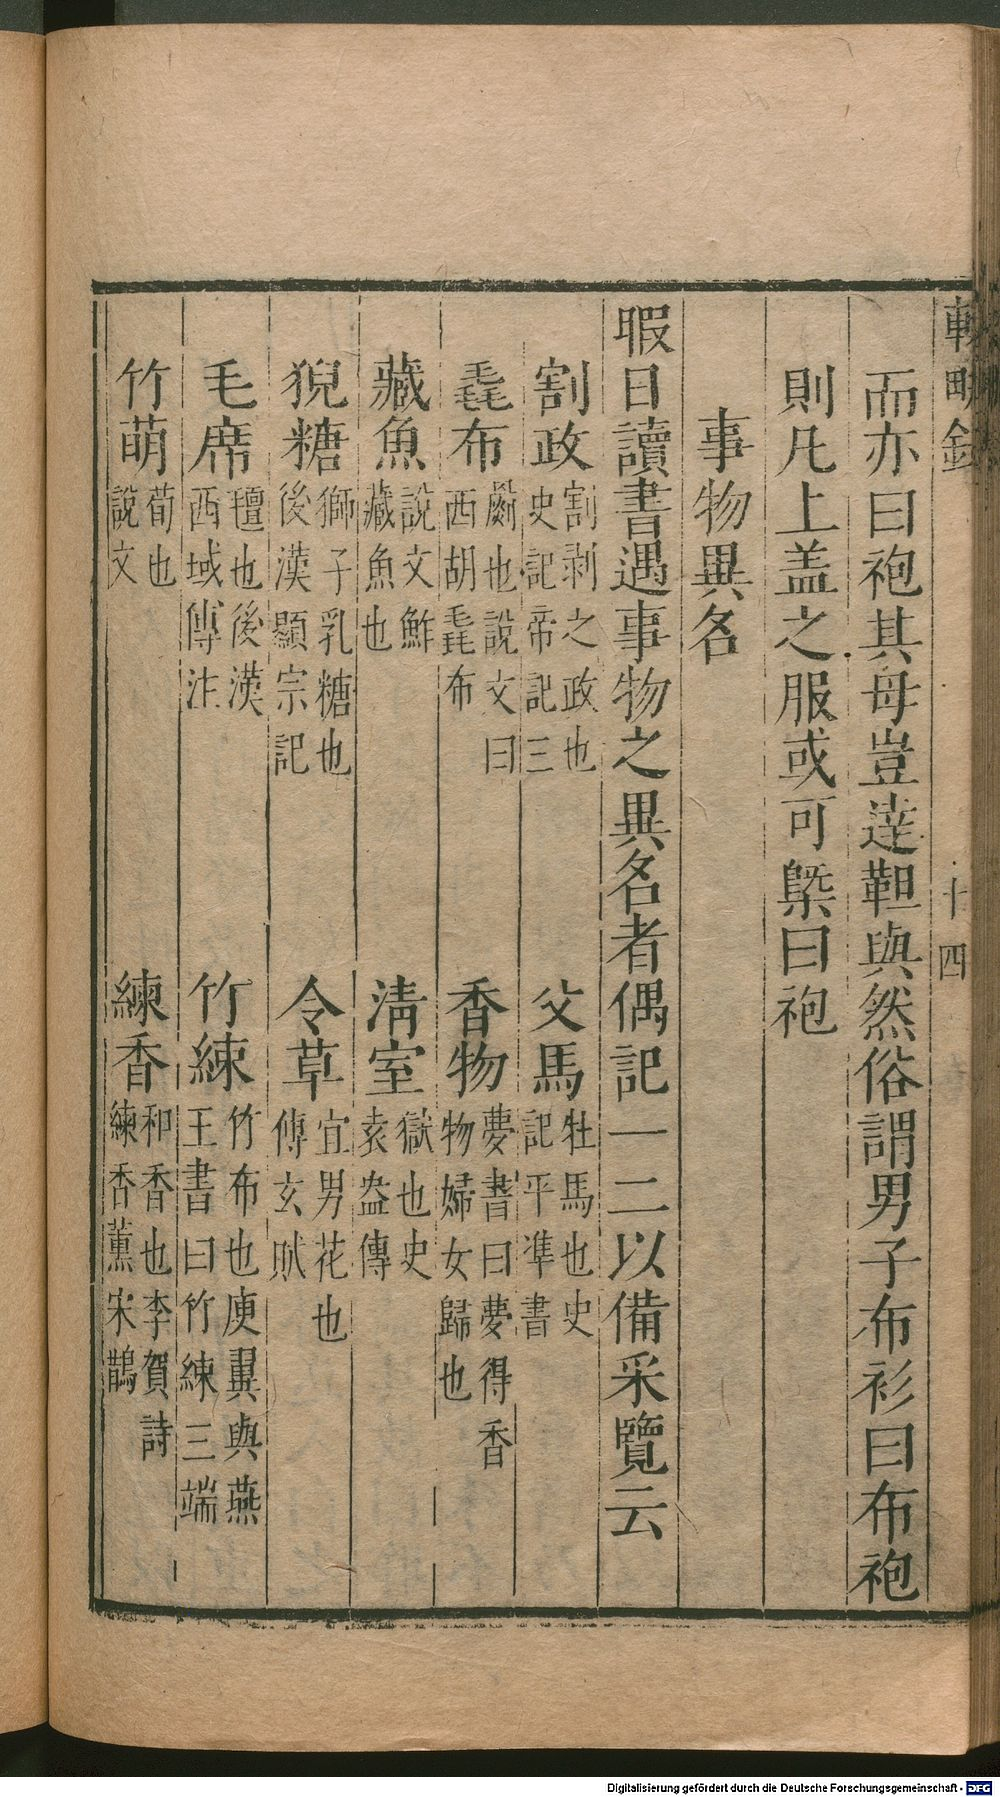 十四
而亦曰袍其母豈達靼與然俗謂男子布衫曰布袍
則凡上盖之服或可槩曰袍
事物異名
暇日讀書遇事物之異名者偶記一二以備采覽云
割政 割剥之政也史記帝記三 父馬 牡馬也史記平準書
毳布 罽也說文曰西胡毳布 香物 夢書曰夢得香物婦女歸也
藏魚 說文鮓藏魚也 清室 獄也史袁盎傳
猊糖 獅子乳糖也後漢顯宗記 令草 宜男花也傅玄賦
毛席 氊也後漢西域傳注 竹練 竹布也庾翼與燕王書曰竹練三端
竹萌 荀也說文 練香 和香也李賀詩練香薰宋鵲
Digitalisierung gefördert durch die Deutsche Forschungsgemeinschaft - DFG